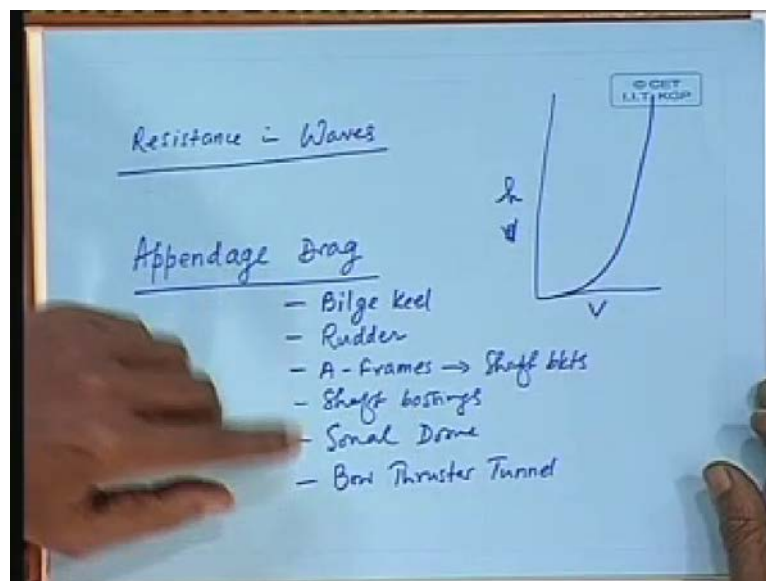 © CET
I.I.T. KGP
Resistance in Waves
Appendage Drag
- Bilge Keel
- Rudder
- A-Frames → Shaft bkts
- Shaft bossings
- Sonal Dome
- Bow Thruster Tunnel
V